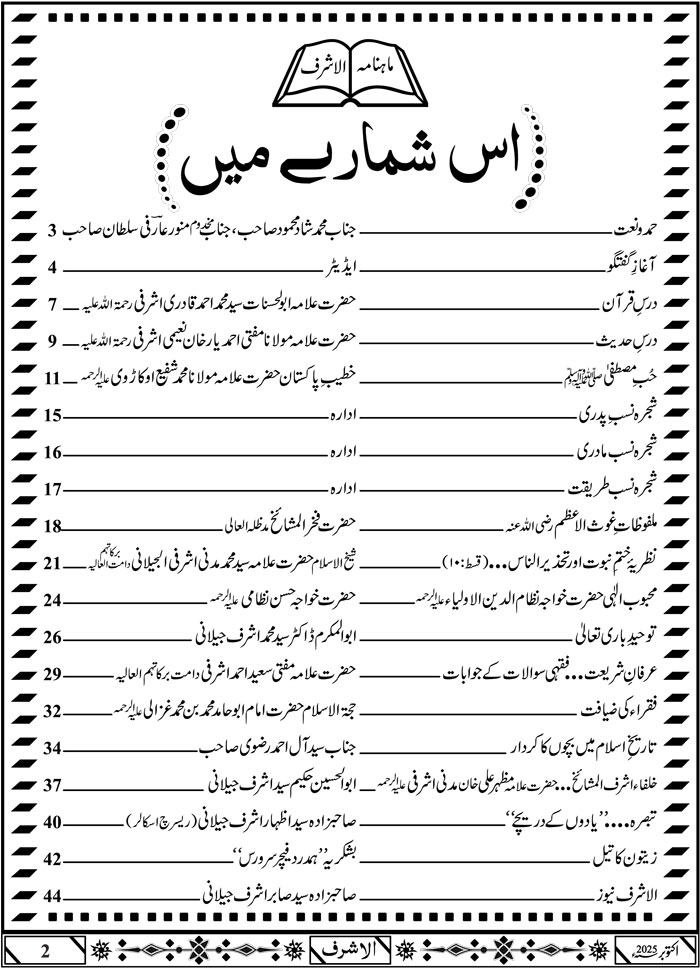 ماہنامہ الاشرف
اس شمارے میں
حمد و نعت ـــــ جناب محمد شاد محمود صاحب، جناب مخدوم منور عارفی سلطان صاحب 3
آغازِ گفتگو ـــــ ایڈیٹر ـــــ 4
درسِ قرآن ـــــ حضرت علامہ ابوالحسنات سید محمد احمد قادری اشرفی رحمۃ اللہ علیہ ـــــ 7
درسِ حدیث ـــــ حضرت علامہ مولانا مفتی احمد یار خان نعیمی اشرفی رحمۃ اللہ علیہ ـــــ 9
حُبِ مصطفیٰ ﷺ ـــــ خطیبِ پاکستان حضرت علامہ مولانا محمد شفیع اوکاڑوی علیہ الرحمہ ـــــ 11
شجرہ نسب پدری ـــــ ادارہ ـــــ 15
شجرہ نسب مادری ـــــ ادارہ ـــــ 16
شجرہ نسب طریقت ـــــ ادارہ ـــــ 17
ملفوظاتِ غوث الاعظم رضی اللہ عنہ ـــــ حضرت فخر المشائخ مدظلہ العالی ـــــ 18
نظریۂ ختمِ نبوت اور تحذیر الناس... (قسط:۱۰) ـــــ شیخ الاسلام حضرت علامہ سید محمد مدنی اشرفی الجیلانی دامت برکاتہم العالیہ ـــــ 21
محبوب الٰہی حضرت خواجہ نظام الدین الاولیاء علیہ الرحمہ ـــــ حضرت خواجہ حسن نظامی علیہ الرحمہ ـــــ 24
توحیدِ باری تعالیٰ ـــــ ابوالمکرم ڈاکٹر سید محمد اشرف جیلانی ـــــ 26
عرفانِ شریعت... فقہی سوالات کے جوابات ـــــ حضرت علامہ مفتی سعید احمد اشرفی دامت برکاتہم العالیہ ـــــ 29
فقراء کی ضیافت ـــــ حجۃ الاسلام حضرت امام ابو حامد محمد بن محمد غزالی علیہ الرحمہ ـــــ 32
تاریخِ اسلام میں بچوں کا کردار ـــــ جناب سید آل احمد رضوی صاحب ـــــ 34
خلفاء اشرف المشائخ... حضرت علامہ مظہر علی خان مدنی اشرفی علیہ الرحمہ ـــــ ابوالحسین حکیم سید اشرف جیلانی ـــــ 37
تبصرہ.... ’’یادوں کے دریچے‘‘ ـــــ صاحبزادہ سید اظہار اشرف جیلانی (ریسرچ اسکالر) ـــــ 40
زیتون کا تیل ـــــ بشکریہ ’’ہمدرد فیچر سرورس‘‘ ـــــ 42
الاشرف نیوز ـــــ صاحبزادہ سید صابر اشرف جیلانی ـــــ 44
اکتوبر 2025ء الاشرف 2